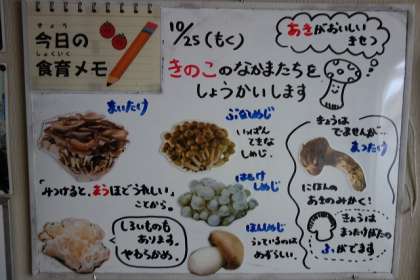 きょう
今日の
しょくいく
食育メモ
10/25(もく)
あきがおいしい
きせつ
きのこのなかまたちを
しょうかいします
まいたけ
「みつけると、まうほどうれしい」
ことから。
しろいものも
あります。
やわらかめ。
ぶなしめじ
いっぱん
てきな
しめじ。
はたけ
しめじ
ほんしめじ
うっているのは
めずらしい。
きょうは
でませんが…
まつたけ
にほんの
あきのみかく!
きょうは
まつたけがたの
ふがでます